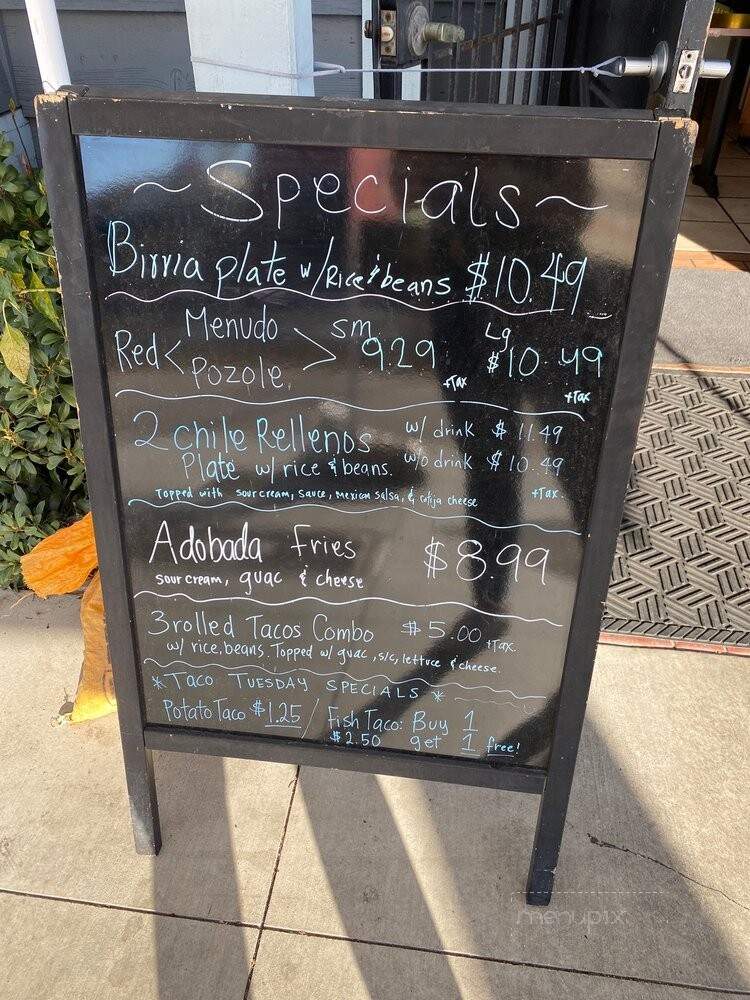 ~Specials~
Birria plate w/Rice & beans $10.49
Red < Menudo Pozole > sm 9.29 +Tax Lg $10.49 +Tax
2 chile Rellenos w/ drink $11.49
Plate w/ rice & beans. w/o drink $10.49
Topped with sour cream, sauce, mexican salsa, & cotija cheese +Tax.
Adobada Fries $8.99
sour cream, guac & cheese
3 rolled Tacos Combo $5.00 +Tax.
w/ rice, beans. Topped w/ guac, s/c, lettuce & cheese.
*Taco Tuesday Specials*
Potato Taco $1.25 / Fish Taco: Buy 1
$2.50 get 1 free!
menupix